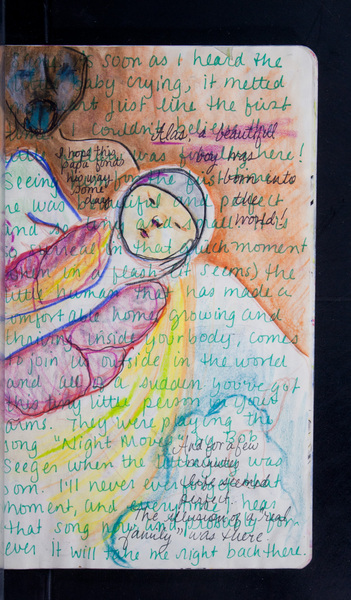 as soon as I heard the
baby crying, it melted
just like the first
I couldn't believe
was finally here!
Seeing for the first
he was beautiful and perfect
and so tiny and small
so surreal in that quick moment
when in a flash (it seems) the
little human that has made a
comfortable home growing and
thriving inside your body, comes
to join us outside in the world
and all of a sudden you've got
this tiny little person in your
arms. They were playing the
song "Night Moves" by Bob
Seeger when the little was
born. I'll never ever forget that
moment, and everytime I hear
that song now and
ever it will take me right back there.
Alas, a beautiful
boy was
born into
the
world!
I hope this
papa finds
his way
home
And for a few
minutes
life seemed
perfect
The illusion of a "real
family" was there